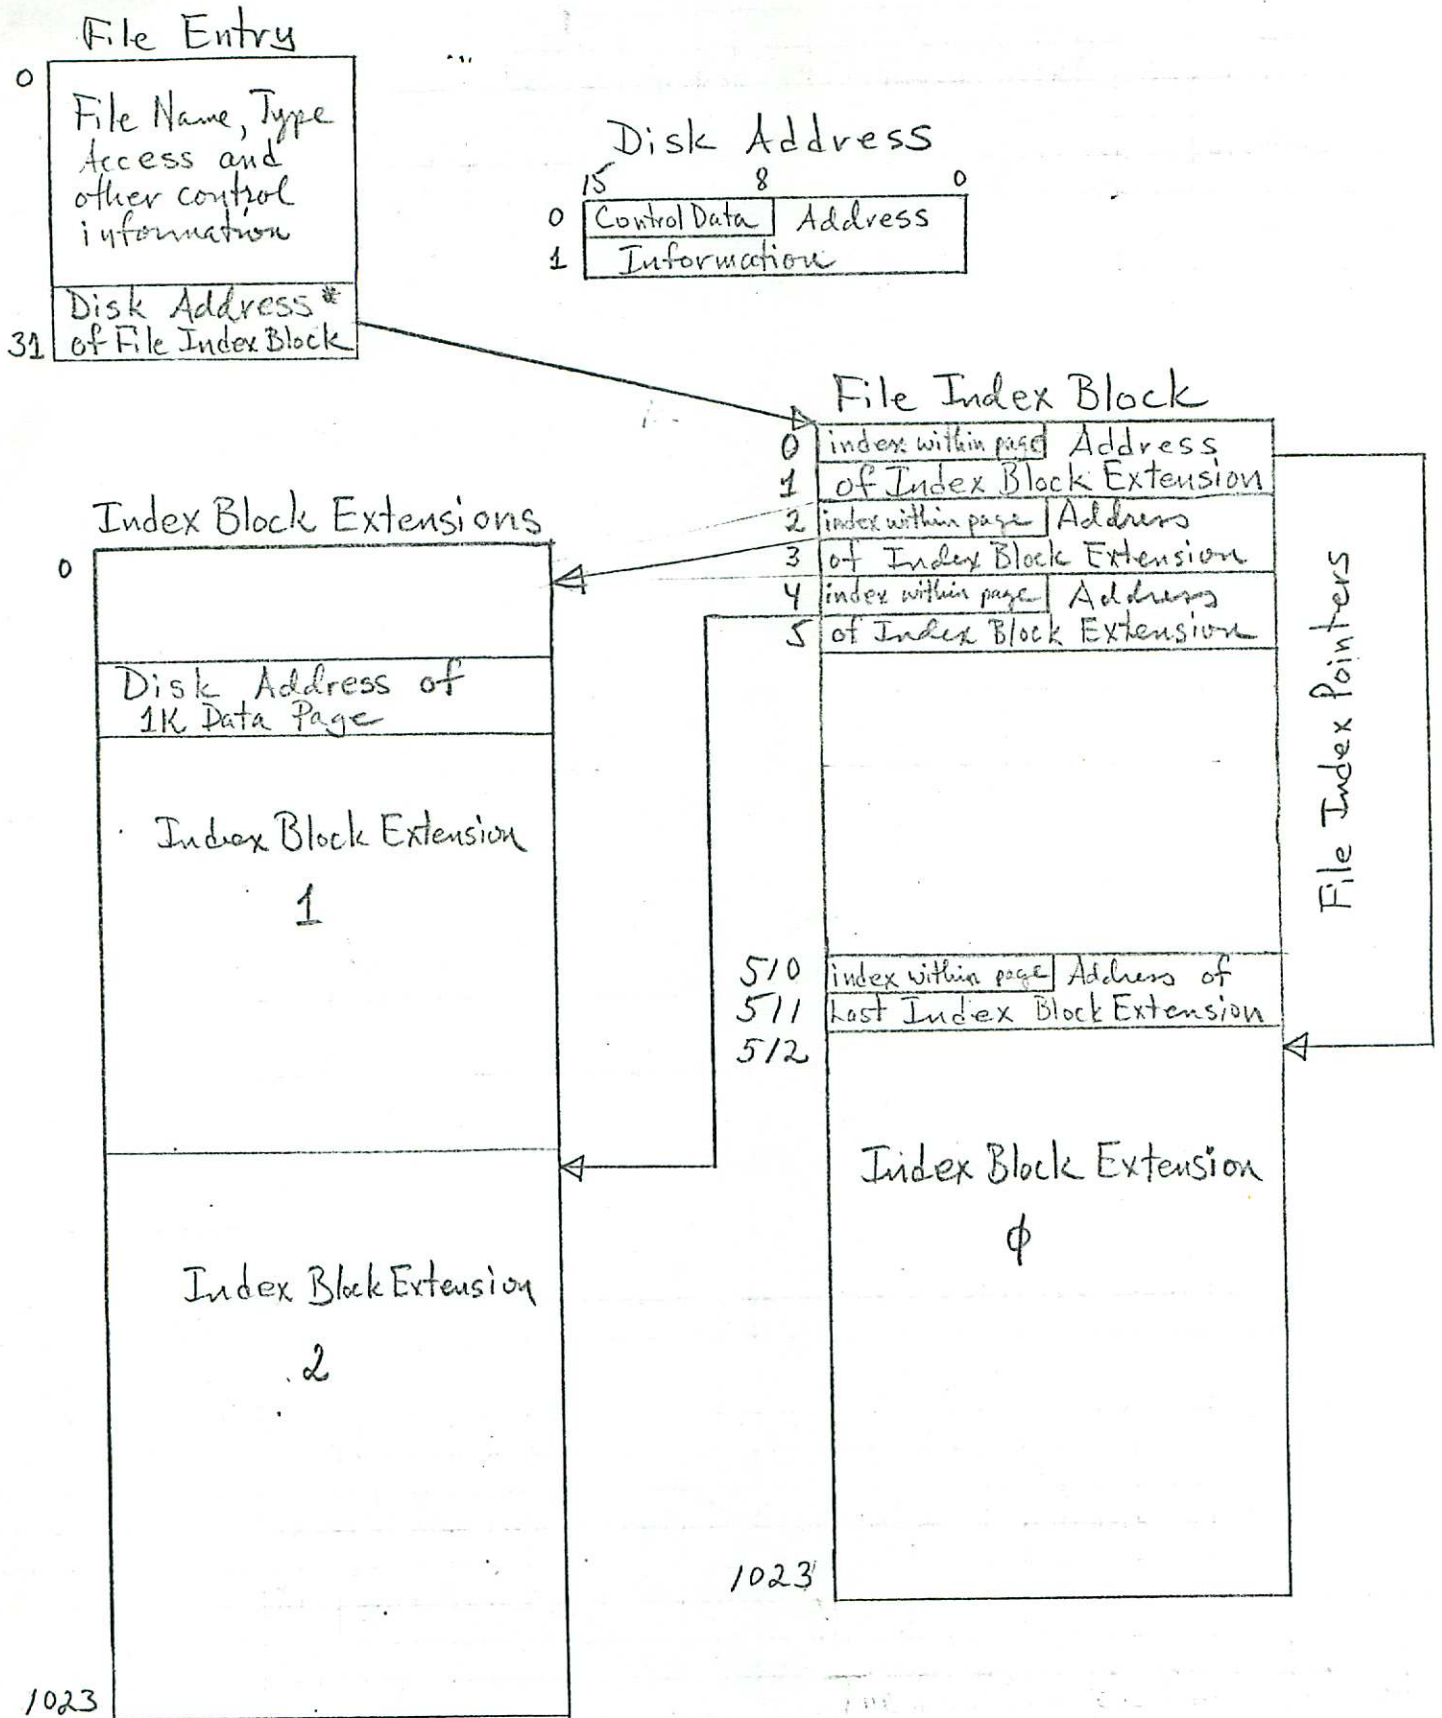 File Entry
0
File Name, Type
Access and
other control
information
Disk Address*
31 of File Index Block
Disk Address
15 8 0
0 Control Data Address
1 Information
File Index Block
0 index within page Address
1 of Index Block Extension
2 index within page Address
3 of Index Block Extension
4 index within page Address
5 of Index Block Extension
510 index within page Address of
511 Last Index Block Extension
512
Index Block Extension
ϕ
1023
File Index Pointers
Index Block Extensions
0
Disk Address of
1K Data Page
Index Block Extension
1
Index Block Extension
2
1023